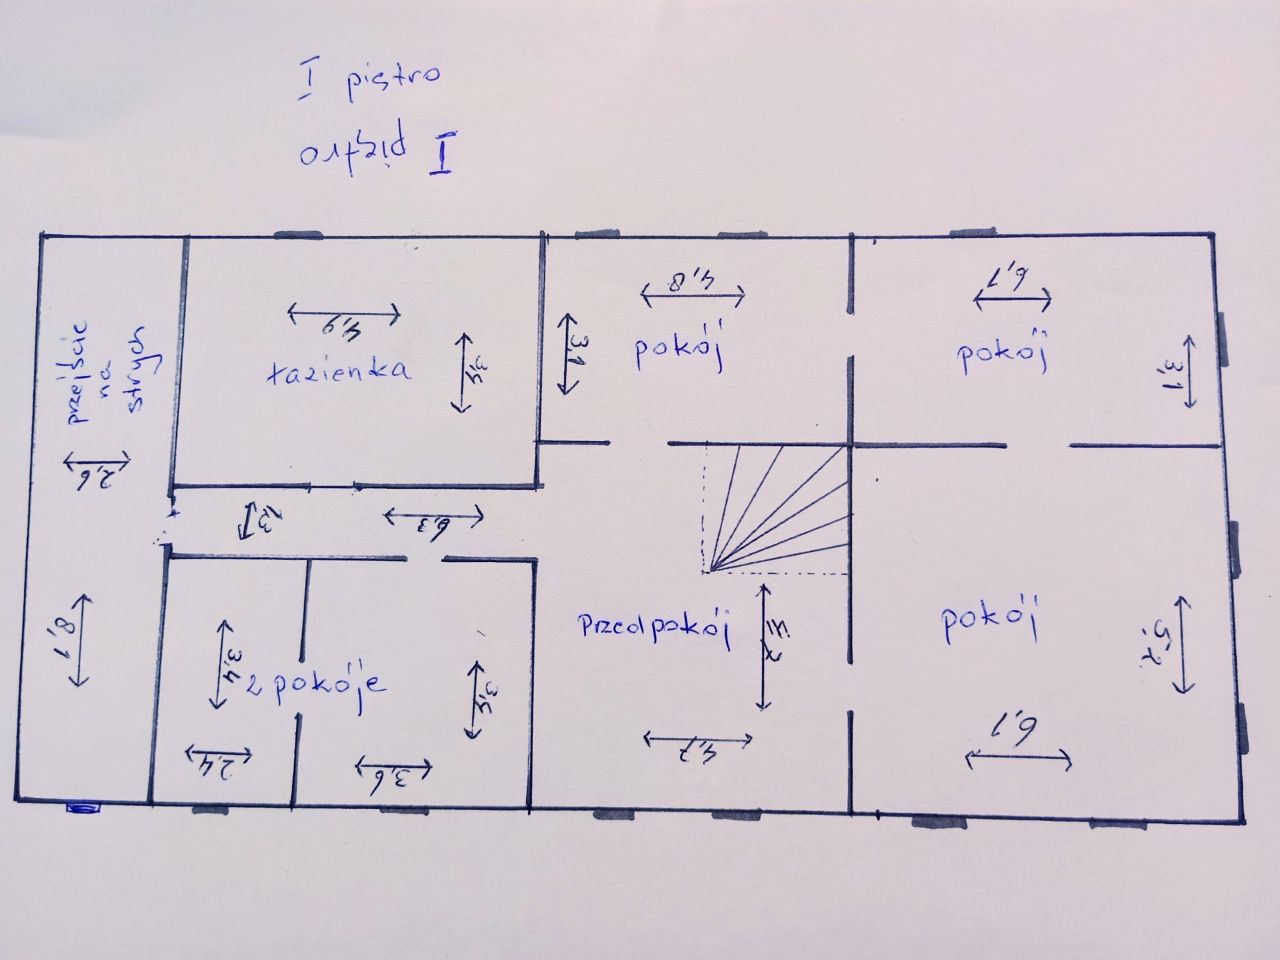 I piętro
I piętro
przejście
na
strych
2,6
8,1
4,9
łazienka
3,4
1,3
6,3
4,8
3,1
pokój
6,1
pokój
3,1
3,4
2 pokóje
3,4
2,4
3,6
Przedpokój
4,7
pokój
6,1